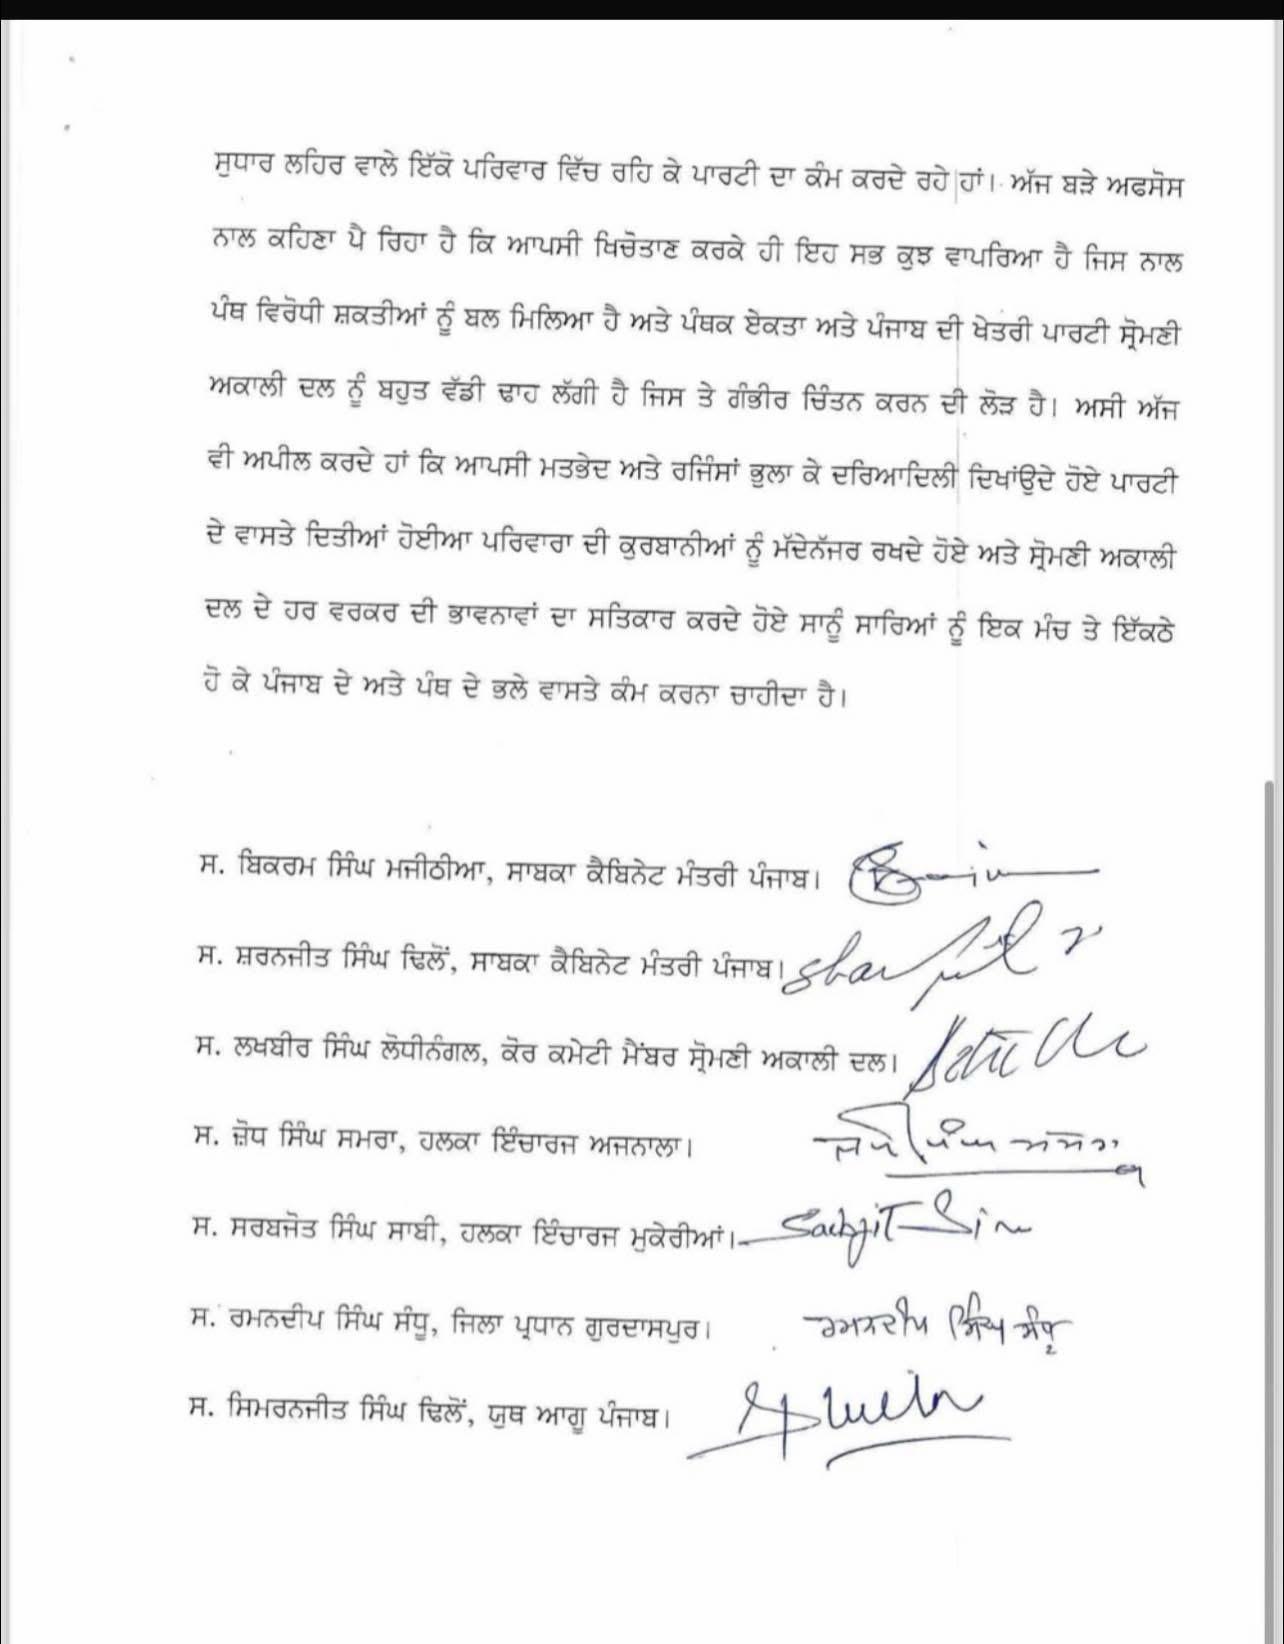 ਸੁਧਾਰ ਲਹਿਰ ਵਾਲੇ ਇੱਕੋ ਪਰਿਵਾਰ ਵਿੱਚ ਰਹਿ ਕੇ ਪਾਰਟੀ ਦਾ ਕੰਮ ਕਰਦੇ ਰਹੇ ਹਾਂ। ਅੱਜ ਬੜੇ ਅਫਸੋਸ
ਨਾਲ ਕਹਿਣਾ ਪੈ ਰਿਹਾ ਹੈ ਕਿ ਆਪਸੀ ਖਿਚੋਤਾਣ ਕਰਕੇ ਹੀ ਇਹ ਸਭ ਕੁਝ ਵਾਪਰਿਆ ਹੈ ਜਿਸ ਨਾਲ
ਪੰਥ ਵਿਰੋਧੀ ਸ਼ਕਤੀਆਂ ਨੂੰ ਬਲ ਮਿਲਿਆ ਹੈ ਅਤੇ ਪੰਥਕ ਏਕਤਾ ਅਤੇ ਪੰਜਾਬ ਦੀ ਖੇਤਰੀ ਪਾਰਟੀ ਸ਼੍ਰੋਮਣੀ
ਅਕਾਲੀ ਦਲ ਨੂੰ ਬਹੁਤ ਵੱਡੀ ਢਾਹ ਲੱਗੀ ਹੈ ਜਿਸ ਤੇ ਗੰਭੀਰ ਚਿੰਤਨ ਕਰਨ ਦੀ ਲੋੜ ਹੈ। ਅਸੀ ਅੱਜ
ਵੀ ਅਪੀਲ ਕਰਦੇ ਹਾਂ ਕਿ ਆਪਸੀ ਮਤਭੇਦ ਅਤੇ ਰਜਿੰਸਾਂ ਭੁਲਾ ਕੇ ਦਰਿਆਦਿਲੀ ਦਿਖਾਂਉਦੇ ਹੋਏ ਪਾਰਟੀ
ਦੇ ਵਾਸਤੇ ਦਿਤੀਆਂ ਹੋਈਆ ਪਰਿਵਾਰਾ ਦੀ ਕੁਰਬਾਨੀਆਂ ਨੂੰ ਮੱਦੇਨੱਜਰ ਰਖਦੇ ਹੋਏ ਅਤੇ ਸ਼੍ਰੋਮਣੀ ਅਕਾਲੀ
ਦਲ ਦੇ ਹਰ ਵਰਕਰ ਦੀ ਭਾਵਨਾਵਾਂ ਦਾ ਸਤਿਕਾਰ ਕਰਦੇ ਹੋਏ ਸਾਨੂੰ ਸਾਰਿਆਂ ਨੂੰ ਇਕ ਮੰਚ ਤੇ ਇੱਕਠੇ
ਹੋ ਕੇ ਪੰਜਾਬ ਦੇ ਅਤੇ ਪੰਥ ਦੇ ਭਲੇ ਵਾਸਤੇ ਕੰਮ ਕਰਨਾ ਚਾਹੀਦਾ ਹੈ।
ਸ. ਬਿਕਰਮ ਸਿੰਘ ਮਜੀਠੀਆ, ਸਾਬਕਾ ਕੈਬਿਨੇਟ ਮੰਤਰੀ ਪੰਜਾਬ।
ਸ. ਸ਼ਰਨਜੀਤ ਸਿੰਘ ਢਿਲੋਂ, ਸਾਬਕਾ ਕੈਬਿਨੇਟ ਮੰਤਰੀ ਪੰਜਾਬ।
ਸ. ਲਖਬੀਰ ਸਿੰਘ ਲੋਧੀਨੰਗਲ, ਕੋਰ ਕਮੇਟੀ ਮੈਂਬਰ ਸ਼੍ਰੋਮਣੀ ਅਕਾਲੀ ਦਲ।
ਸ. ਜ਼ੋਧ ਸਿੰਘ ਸਮਰਾ, ਹਲਕਾ ਇੰਚਾਰਜ ਅਜਨਾਲਾ।
ਸ. ਸਰਬਜੋਤ ਸਿੰਘ ਸਾਬੀ, ਹਲਕਾ ਇੰਚਾਰਜ ਮੁਕੇਰੀਆਂ।
ਸ. ਰਮਨਦੀਪ ਸਿੰਘ ਸੰਧੂ, ਜਿਲਾ ਪ੍ਰਧਾਨ ਗੁਰਦਾਸਪੁਰ। ਰਮਨਦੀਪ ਸਿੰਘ ਸੰਧੂ
ਸ. ਸਿਮਰਨਜੀਤ ਸਿੰਘ ਢਿਲੋਂ, ਯੂਥ ਆਗੂ ਪੰਜਾਬ।